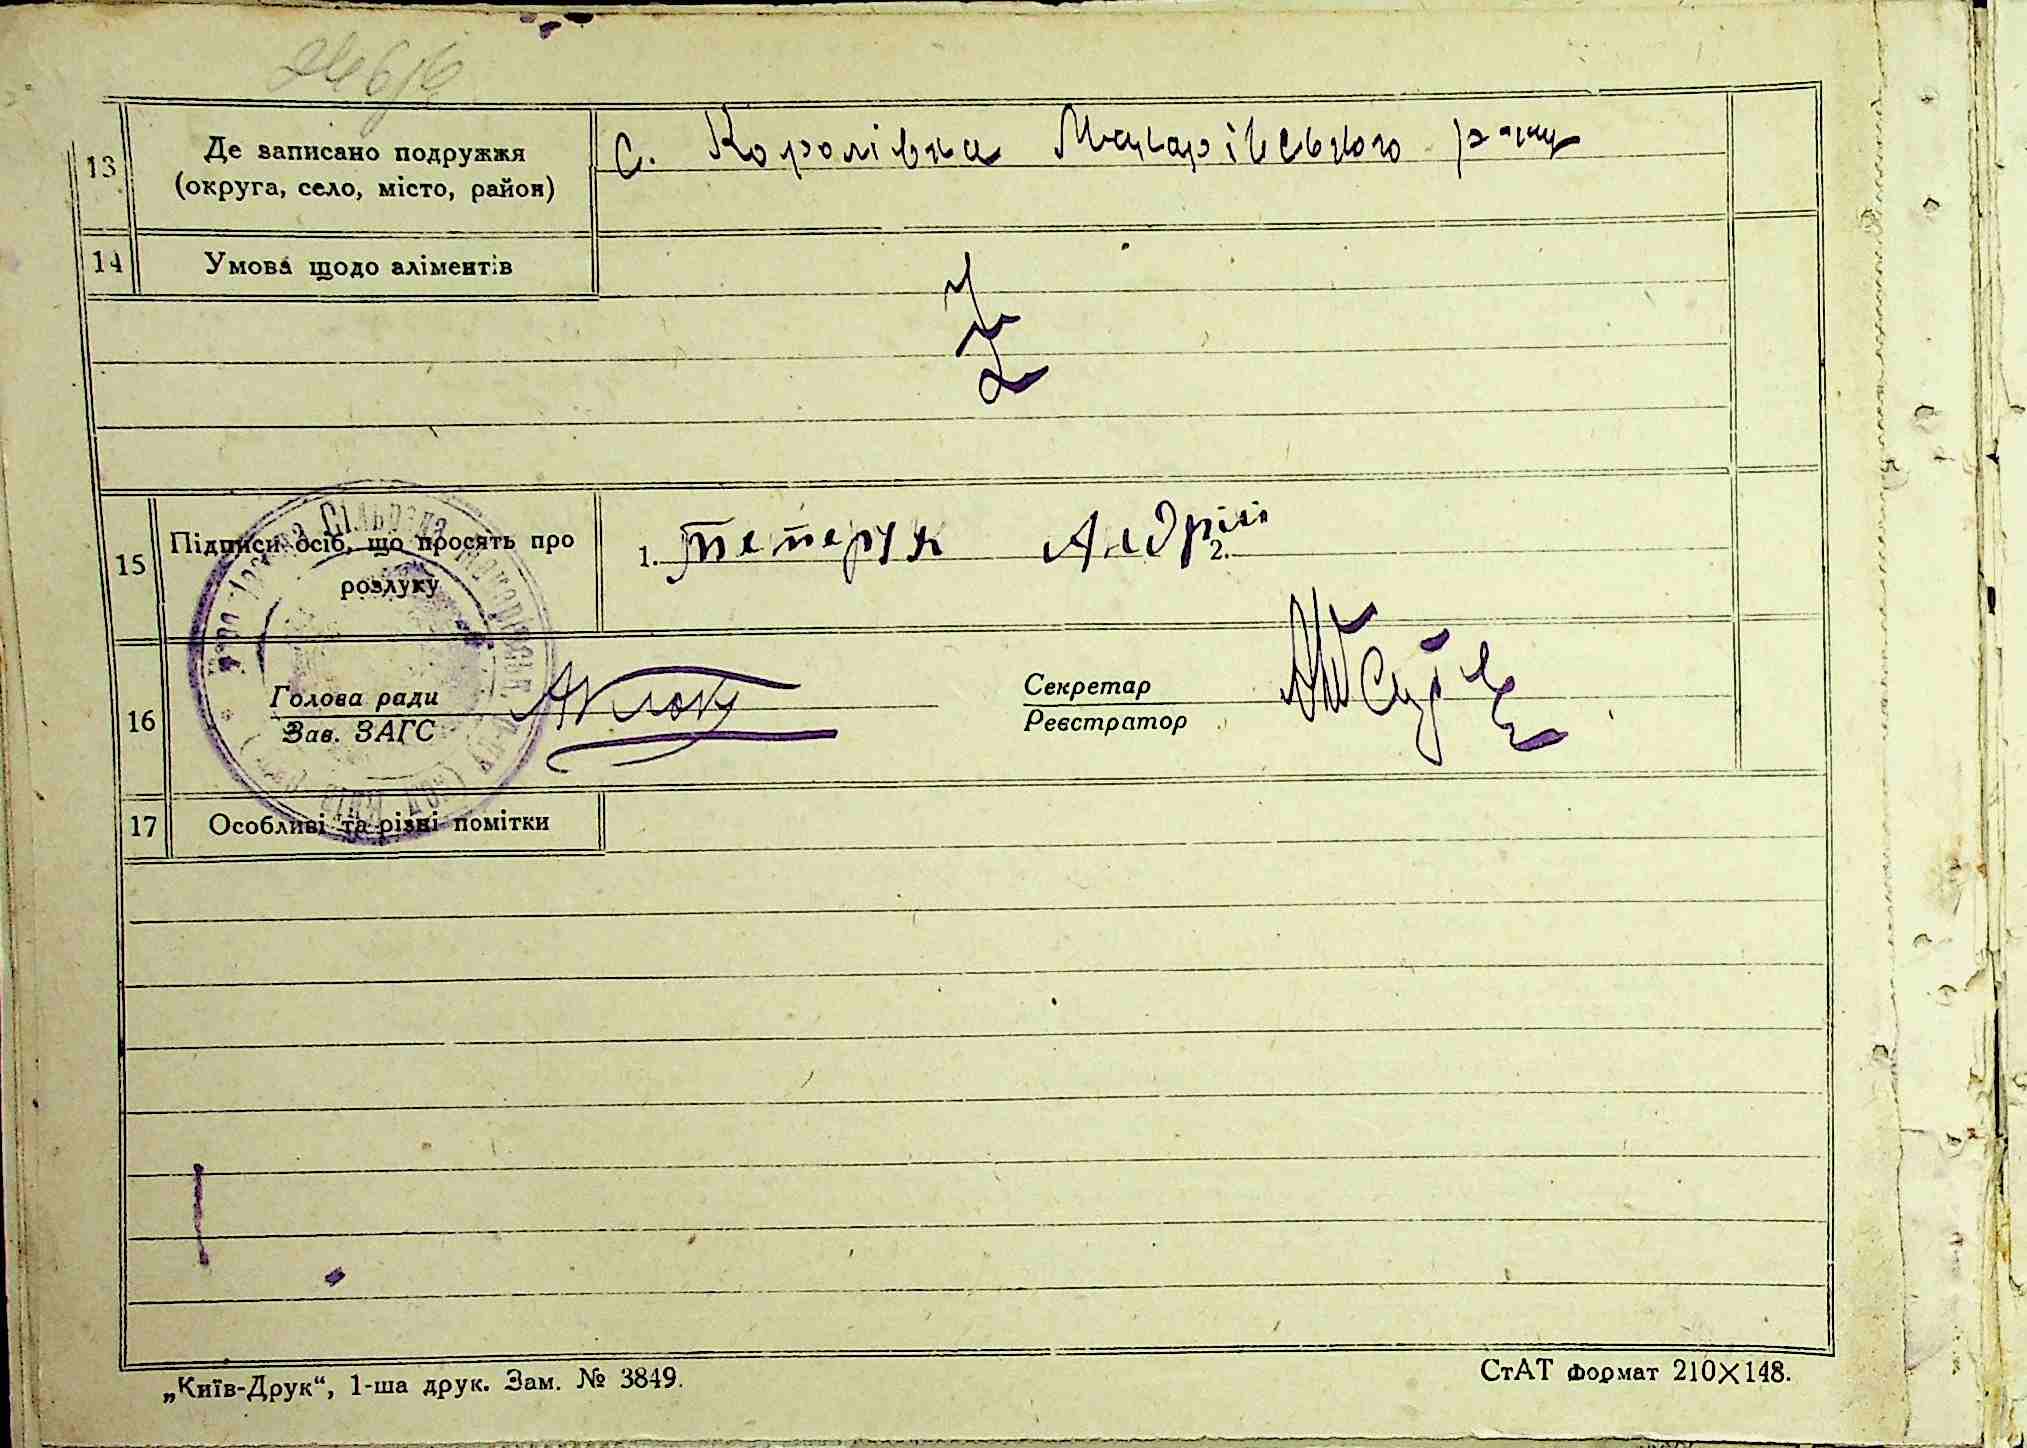 13
Де записано подружжя
(округа, село, місто, район)
с. Королівка Макарівського р-ну
14
Умова щодо аліментів
Z
15
Підписи осіб, що просять про
розлуку
1. Тетерук Андрій
2.
16
Голова ради
Зав. ЗАГС
Секретар
Реєстратор
17
Особливі та різні помітки
„Київ-Друк“, 1-ша друк. Зам. № 3849.
СтАТ формат 210×148.